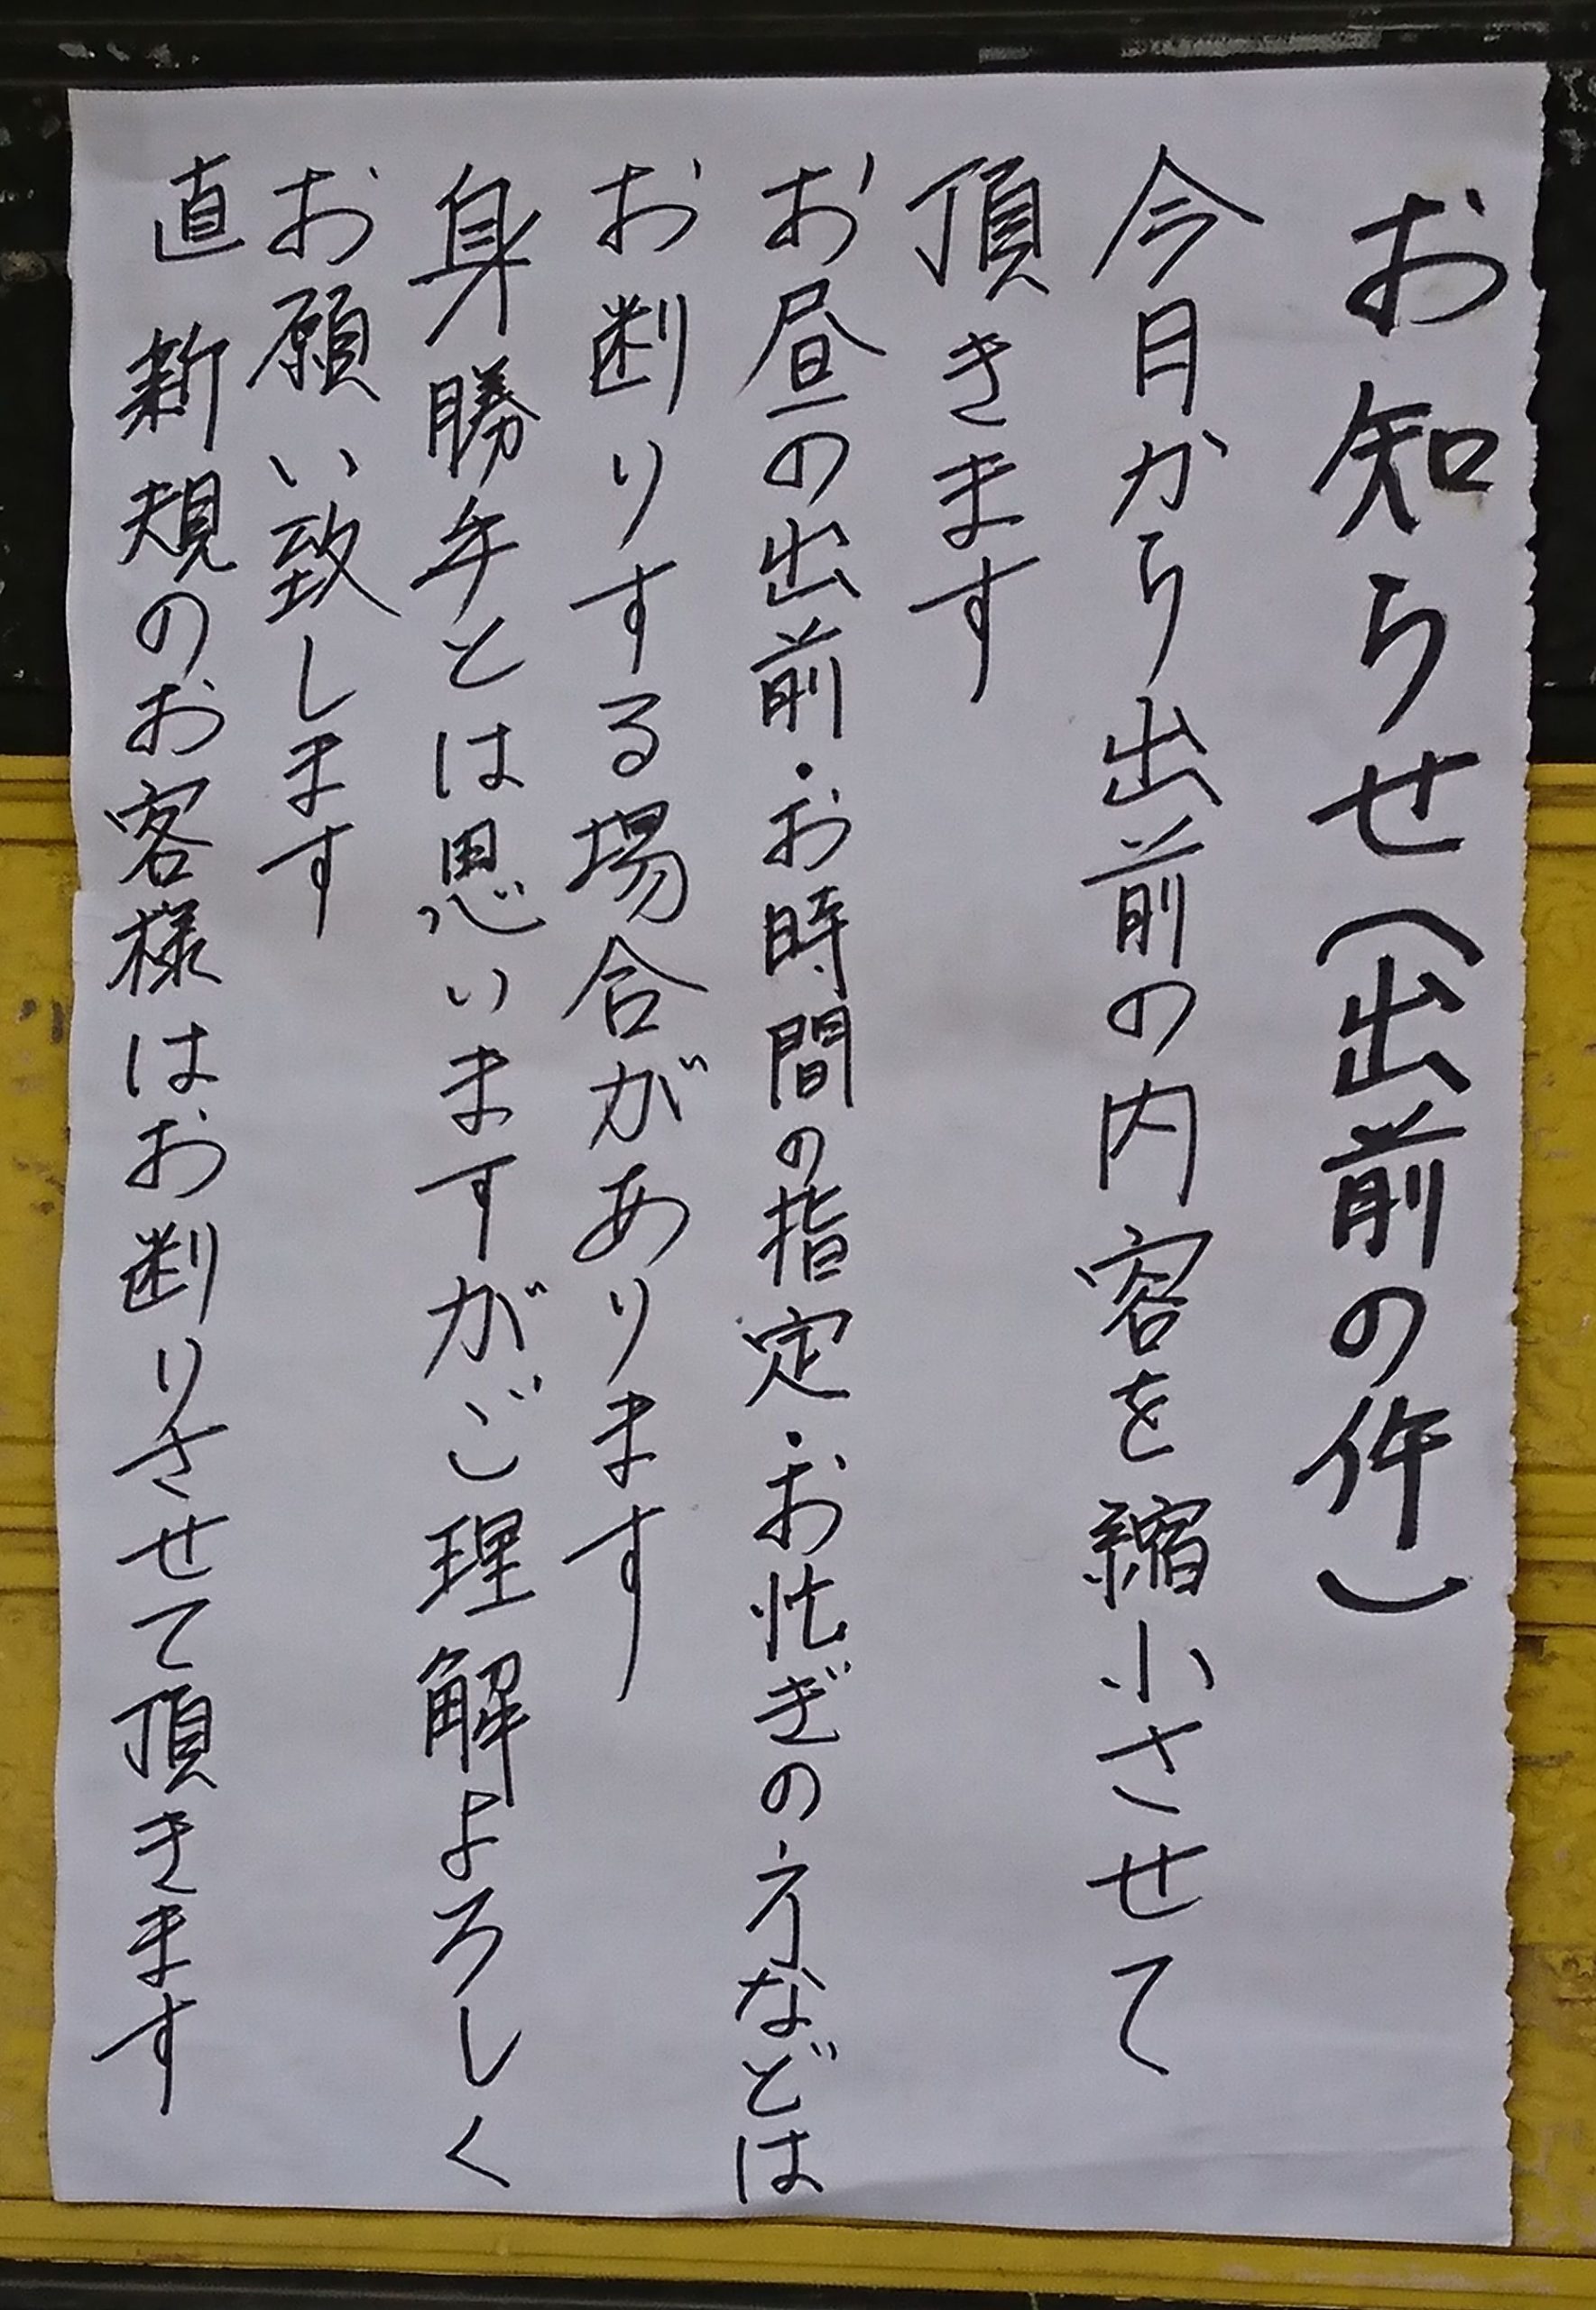 お知らせ（出前の件）
今月から出前の内容を縮小させて
頂きます
お昼の出前・お時間の指定・お忙ぎの方などは
お断りする場合があります
身勝手とは思いますがご理解よろしく
お願い致します
直 新規のお客様はお断りさせて頂きます